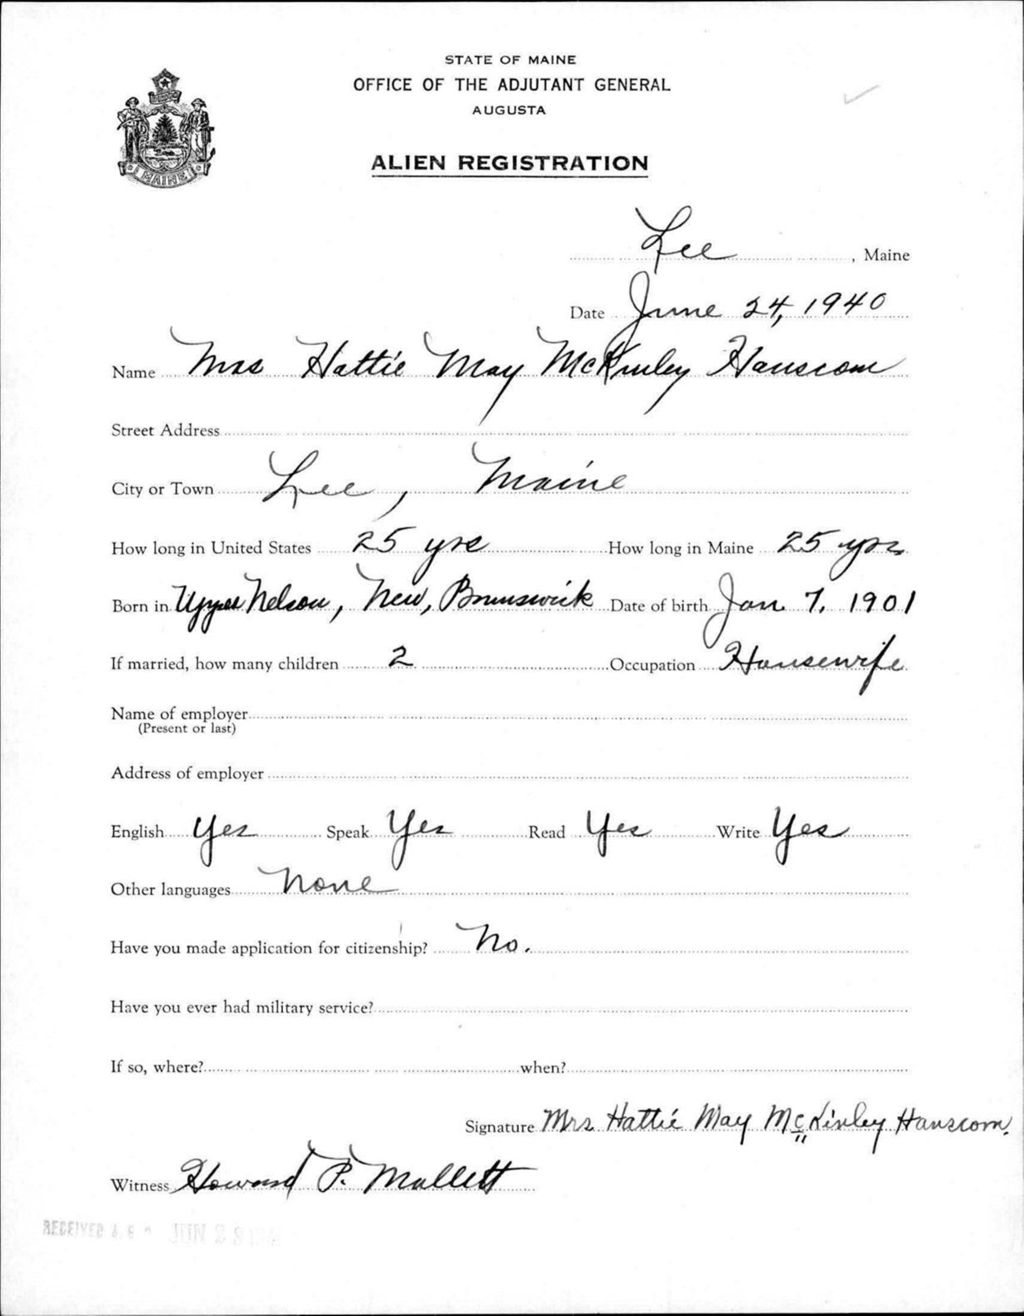 STATE OF MAINE
OFFICE OF THE ADJUTANT GENERAL
AUGUSTA
ALIEN REGISTRATION
MAINE
Lee, Maine
Date June 24, 1940
Name Mrs Hattie May McKinley Hanscom
Street Address
City or Town Lee, Maine
How long in United States 25 yrs How long in Maine 25 yrs
Born in Upper Nelson, New, Brunswick Date of birth Jan. 7, 1901
If married, how many children 2 Occupation Housewife
Name of employer
(Present or last)
Address of employer
English Yes Speak Yes Read Yes Write Yes
Other languages None
Have you made application for citizenship? No.
Have you ever had military service?
If so, where? when?
Signature Mrs Hattie May McKinley Hanscom.
Witness Howard P. Mallett
RECEIVED JUN 2